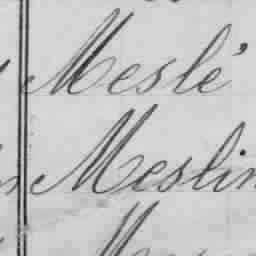 Meslé
Meslin